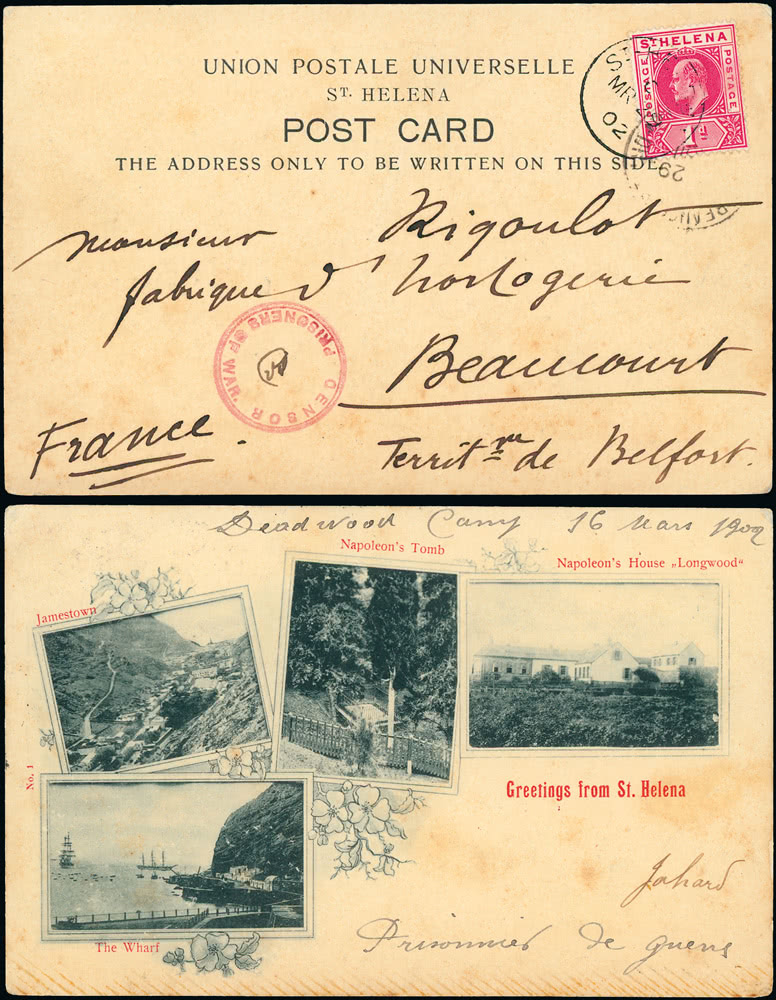 UNION POSTALE UNIVERSELLE
ST. HELENA
POST CARD
THE ADDRESS ONLY TO BE WRITTEN ON THIS SIDE
ST HELENA
POSTAGE
POSTAGE
1d
MR
02
29
Monsieur Rigoulot
fabrique d'horlogerie
CENSOR
PRISONERS OF WAR
Beaucourt
France.
Territre de Belfort.
Deadwood Camp 16 Mars 1902
Napoleon's Tomb
Napoleon's House „Longwood“
Jamestown
No. 1
Greetings from St. Helena
Johard
The Wharf
Prisonnier de guerre